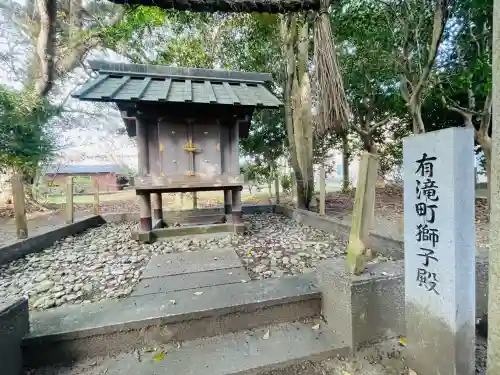 有滝町獅子殿